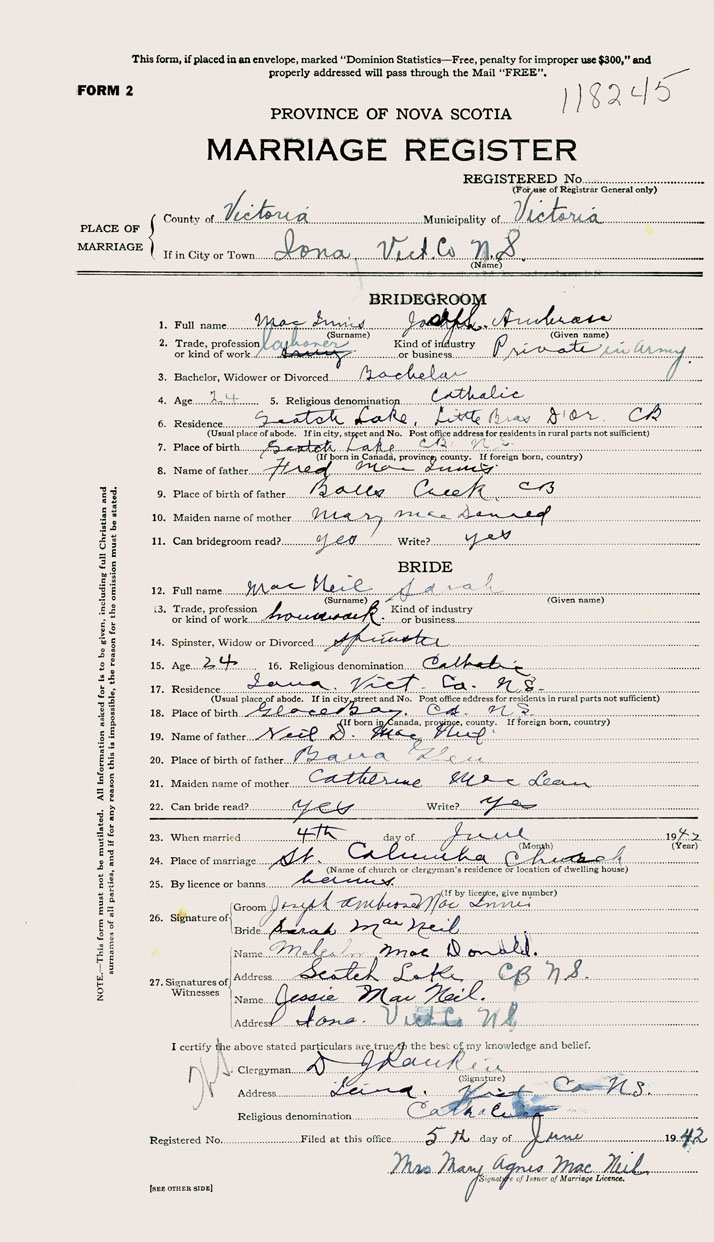 This form, if placed in an envelope, marked "Dominion Statistics—Free, penalty for improper use $300," and
properly addressed will pass through the Mail "FREE".
FORM 2
118245
PROVINCE OF NOVA SCOTIA
MARRIAGE REGISTER
REGISTERED No.
(For use of Registrar General only)
PLACE OF MARRIAGE
County of Victoria Municipality of Victoria
If in City or Town Iona, Vict. Co N.S.
(Name)
BRIDEGROOM
1. Full name Mac Innis Joseph Ambrose
(Surname) (Given name)
2. Trade, profession or kind of work labourer Kind of industry or business Private in Army
3. Bachelor, Widower or Divorced Bachelor
4. Age 24 5. Religious denomination Catholic
6. Residence Scotch Lake, Little Bras D'Or. CB
(Usual place of abode. If in city, street and No. Post office address for residents in rural parts not sufficient)
7. Place of birth Scotch Lake CB N.S.
(If born in Canada, province, county. If foreign born, country)
8. Name of father Fred Mac Innis
9. Place of birth of father Balls Creek CB
10. Maiden name of mother Mary Mac Donald
11. Can bridegroom read? yes Write? yes
BRIDE
12. Full name Mac Neil Sarah
(Surname) (Given name)
13. Trade, profession or kind of work housework Kind of industry or business
14. Spinster, Widow or Divorced Spinster
15. Age 24 16. Religious denomination Catholic
17. Residence Iona. Vict. Co. N.S.
(Usual place of abode. If in city, street and No. Post office address for residents in rural parts not sufficient)
18. Place of birth Glace Bay, N.S.
(If born in Canada, province, county. If foreign born, country)
19. Name of father Neil D. Mac Neil
20. Place of birth of father Barra Glen
21. Maiden name of mother Catherine Mac Lean
22. Can bride read? yes Write? yes
23. When married 4th day of June 1942
(Month) (Year)
24. Place of marriage St. Columba Church
(Name of church or clergyman's residence or location of dwelling house)
25. By licence or banns banns.
(If by licence, give number)
26. Signature of
Groom Joseph Ambrose Mac Innis
Bride Sarah Mac Neil
27. Signatures of Witnesses
Name Malcolm Mac Donald.
Address Scotch Lake CB N.S.
Name Jessie Mac Neil.
Address Iona. Vict Co NS
I certify the above stated particulars are true to the best of my knowledge and belief.
Clergyman D J Rankin
(Signature)
Address Iona. Vict Co N.S.
Religious denomination Catholic
Registered No. Filed at this office 5th day of June 1942
Mrs Mary Agnes Mac Neil
Signature of Issuer of Marriage Licence.
[SEE OTHER SIDE]
NOTE.—This form must not be mutilated. All information asked for is to be given, including full Christian and
surnames of all parties, and if for any reason this is impossible, the reason for the omission must be stated.